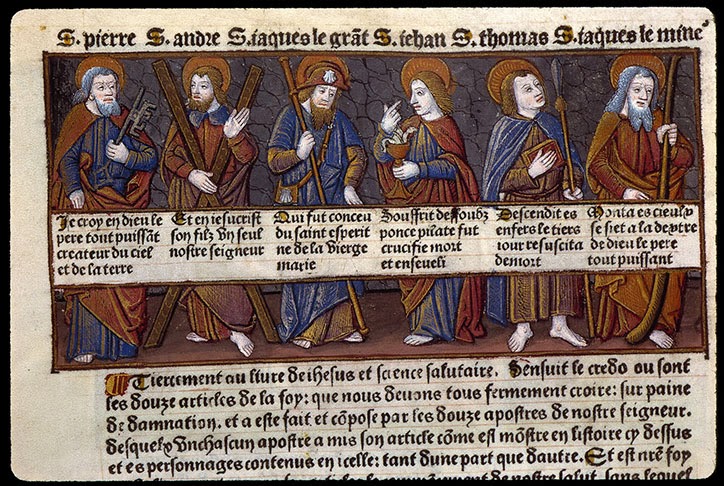 S. pierre S. andre S. iaques le grãt S. iehan S. thomas S. iaques le mine
Je croy en dieu le
pere tout puissãt
createur du ciel
et de la terre
Et en iesucrist
son filz vn seul
nostre seigneur
Qui fut conceu
du saint esperit
ne de la vierge
marie
Souffrit dessoubz
ponce pilate fut
crucifie mort
et enseueli
Descendit es
enfers le tiers
iour resuscita
de mort
Monta es cieulx
se siet a la dextre
de dieu le pere
tout puissant
Tiercement au liure de ihesus et science salutaire. Sensuit le credo ou sont
les douze articles de la foy: que nous deuons tous fermement croire: sur paine
de damnation. et a este fait et cõpose par les douze apostres de nostre seigneur.
desquelx vnchascun apostre a mis son article cõme est mõstre en listoire cy dessus
et es personnages contenus en icelle: tant dune part que dautre. Et est nrẽ foy
de nostre salut, sans lequel